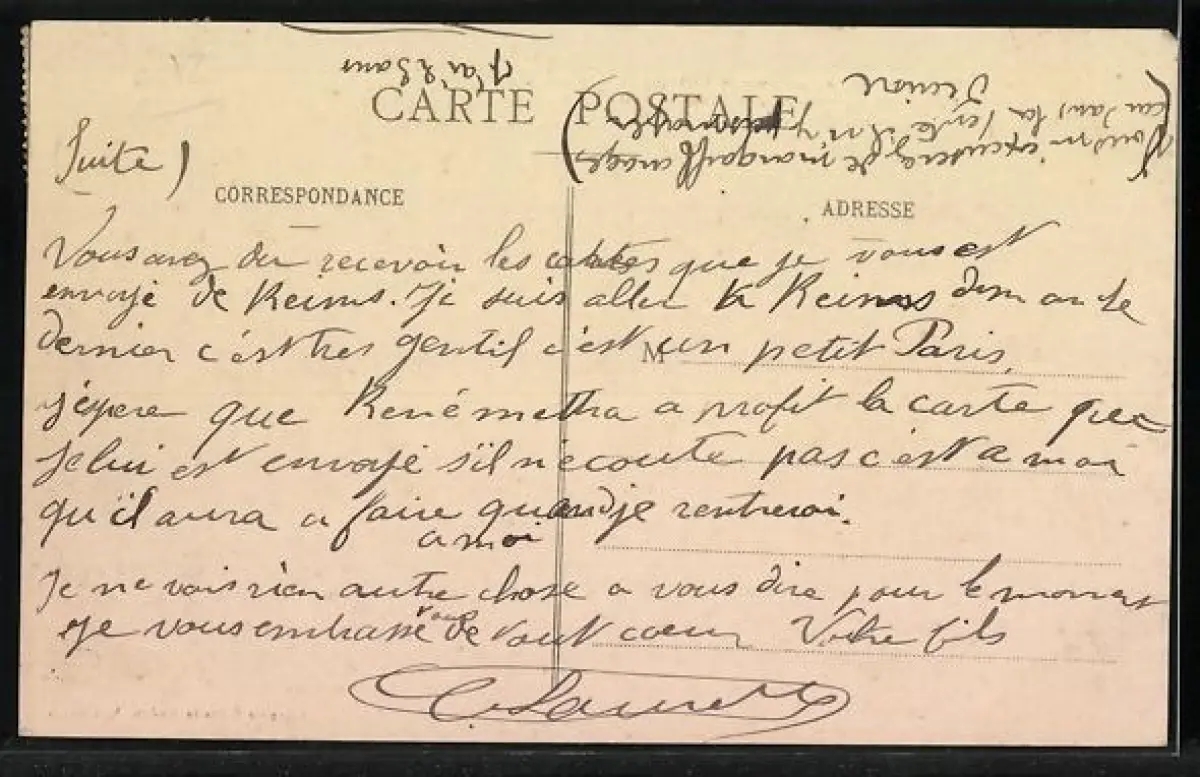 CARTE POSTALE
Suite)
CORRESPONDANCE
ADRESSE
Vous avez du recevoir les cartes que je vous est
envoyé de Reims. Je suis aller a Reims dimanche
dernier c'est tres gentil c'est un petit Paris.
M
j'espere que René mettra a profit la carte que
je lui est envoyé s'il n'ecoute pas c'est a moi
qu'il aura a faire quand je rentrerai.
a moi
Je ne vois rien autre chose a vous dire pour le moment
Je vous embrasse de tout coeur Votre fils